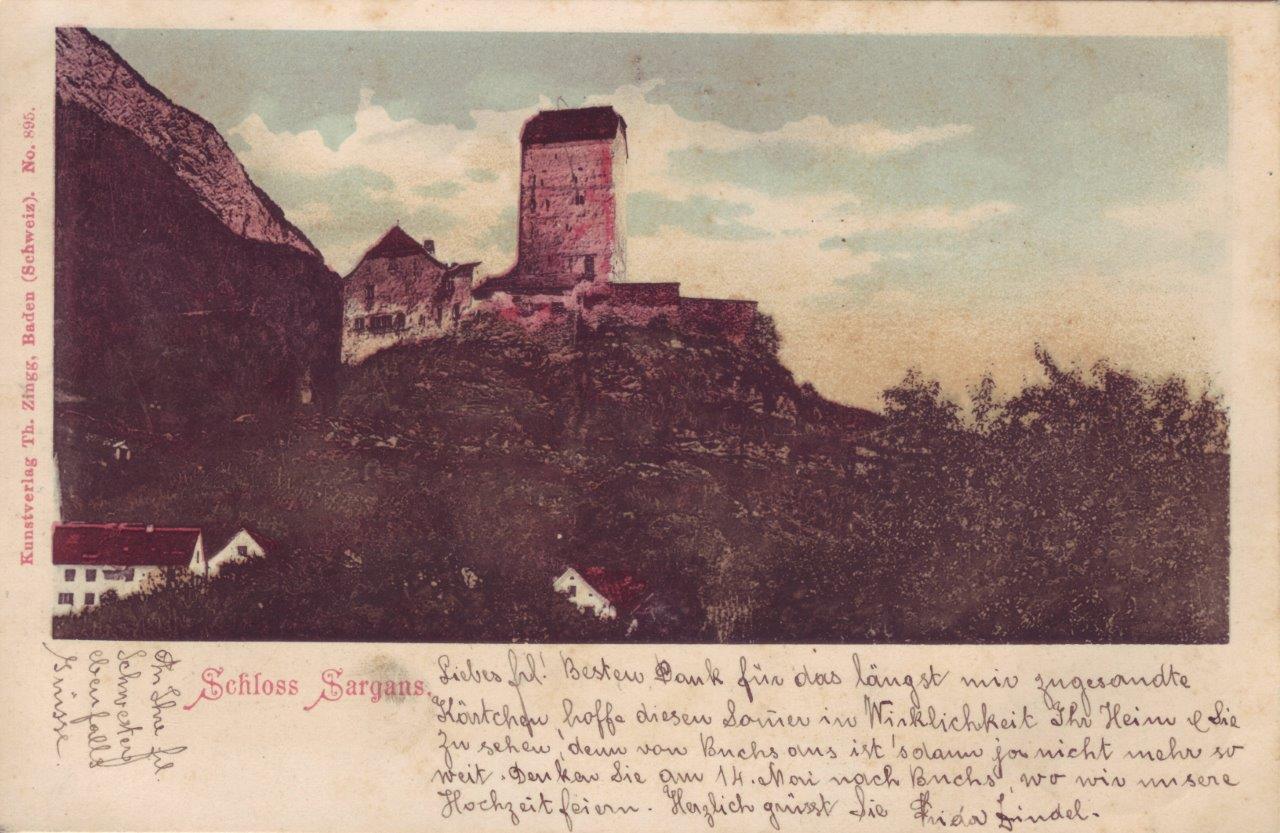 Kunstverlag Th. Zingg, Baden (Schweiz). No. 895.
Schloss Sargans.
Liebes frl! Besten Dank für das längst mir zugesandte
Kärtchen, hoffe diesen Som̄er in Wirklichkeit Ihr Heim & Sie
zu sehen, denn von Buchs aus ist's dann ja nicht mehr so
weit. Denken Sie am 14. Mai nach Buchs, wo wir unsere
Hochzeit feiern. Herzlich grüsst Sie Frida Zindel.
An Ihre frl.
Schwester
ebenfalls
Grüsse